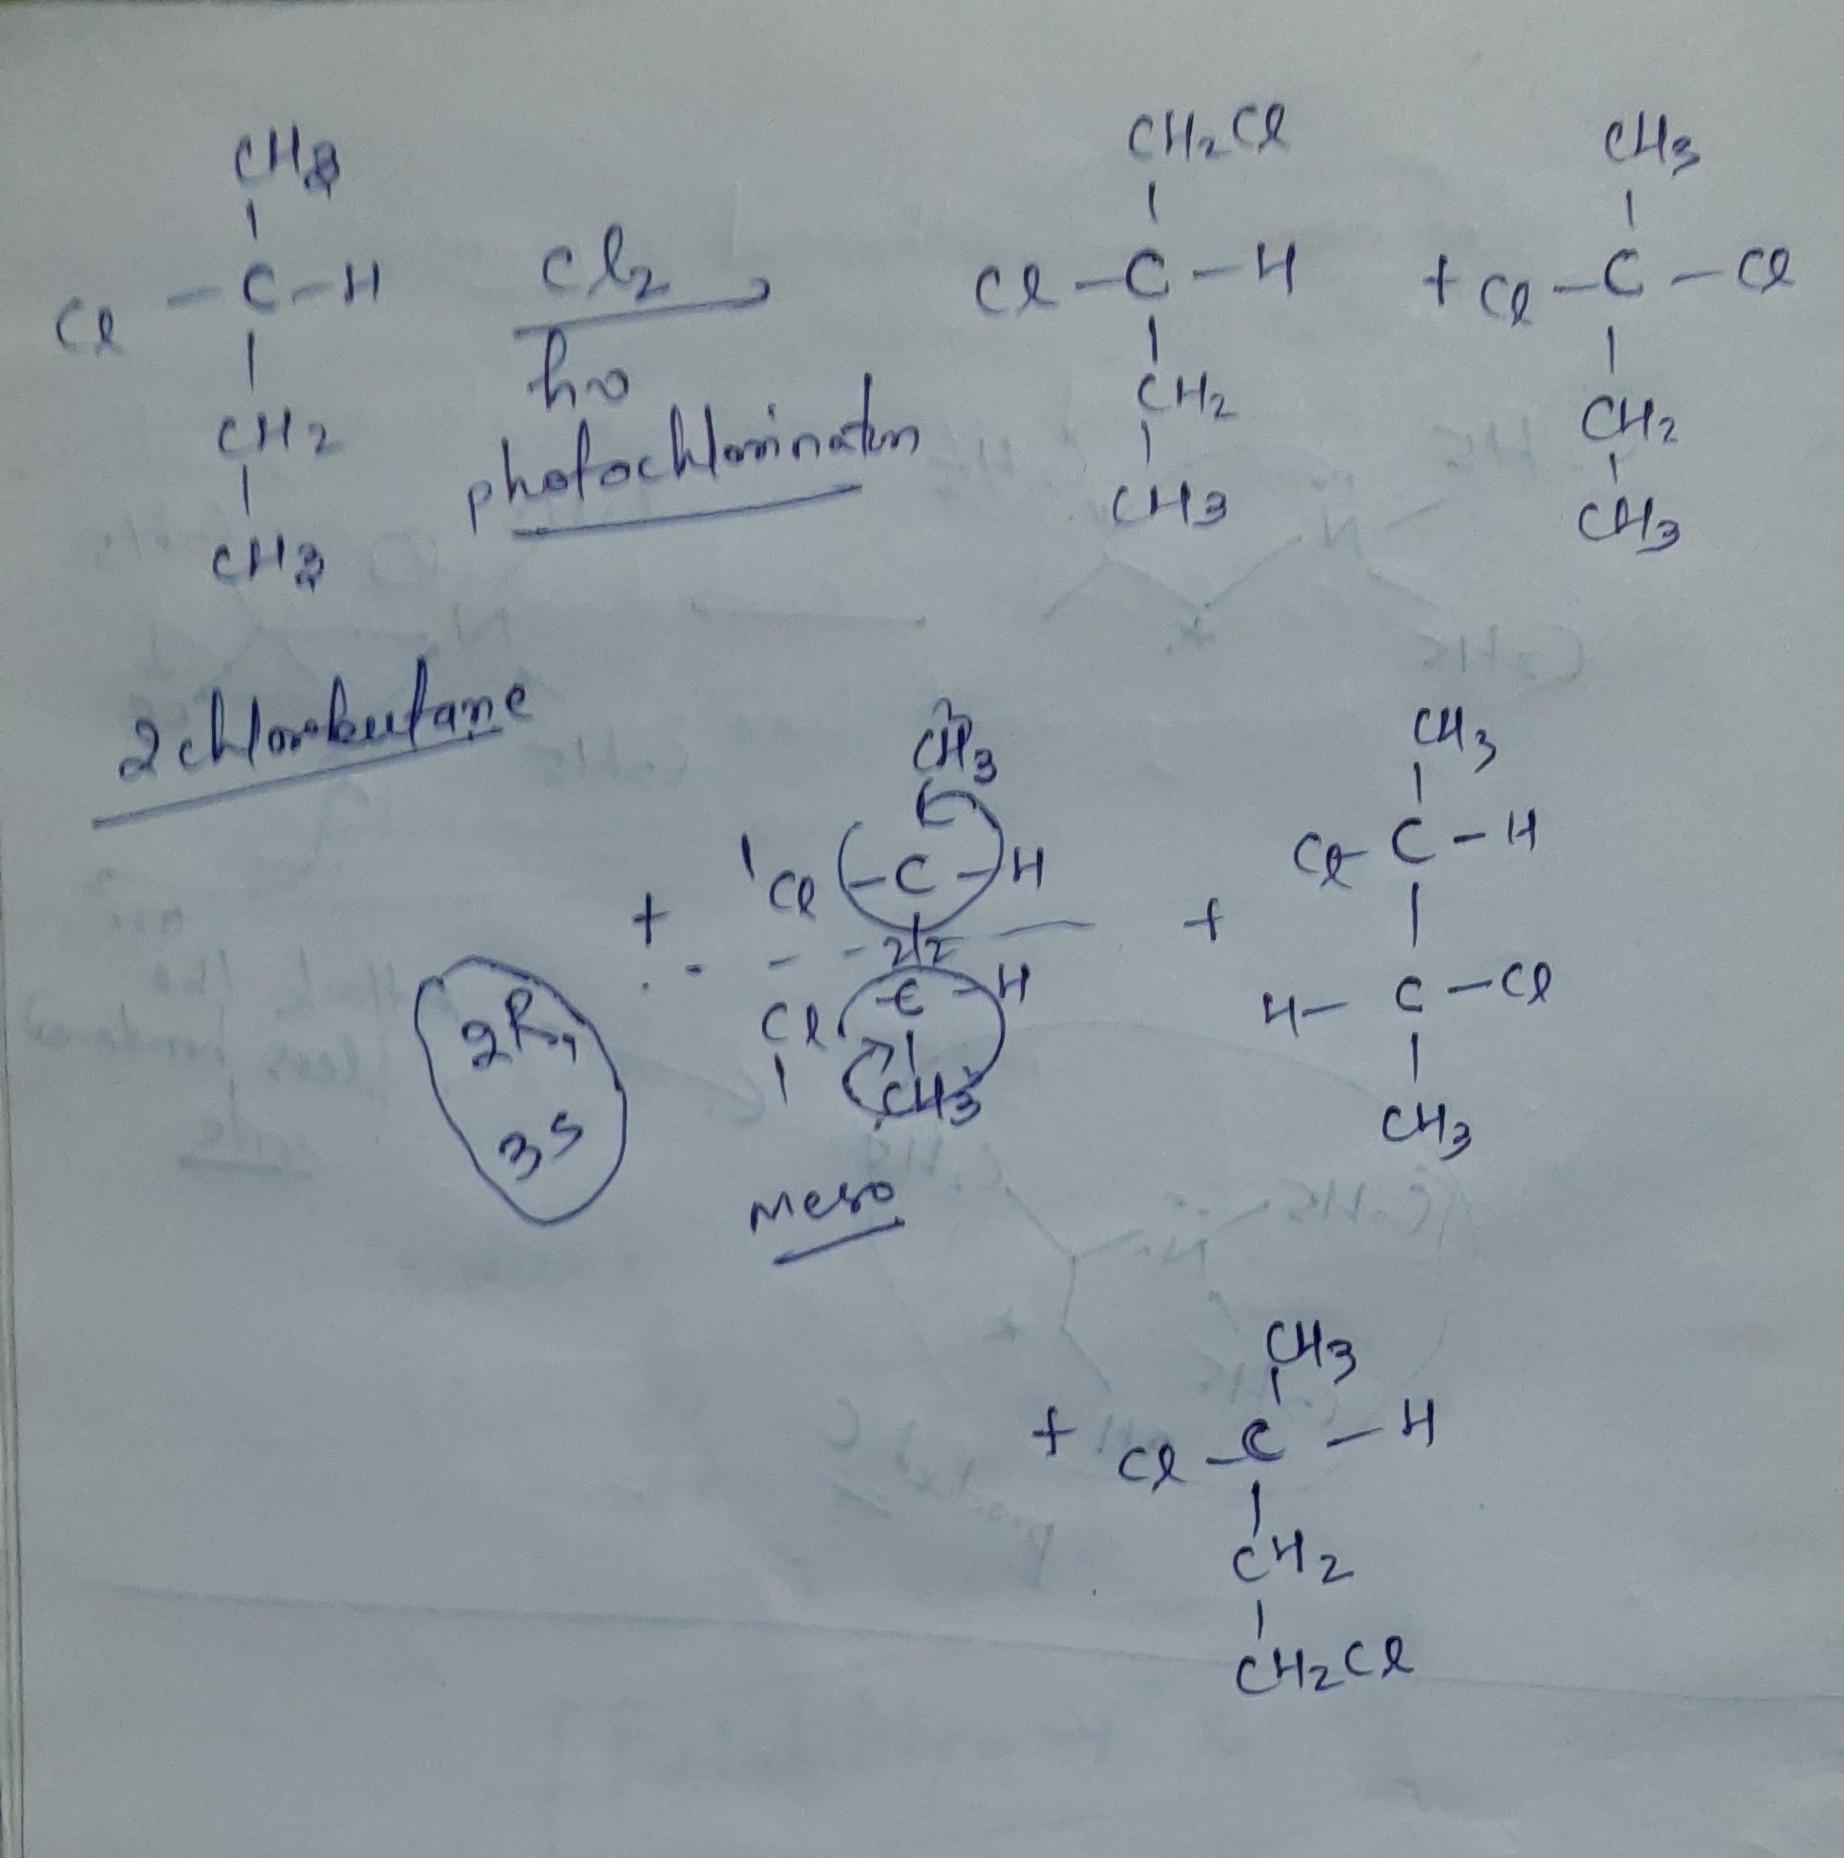 CH3
Cl - C - H
CH2
CH3
Cl2
hν
photochlorination
CH2Cl
Cl - C - H
CH2
CH3
+ Cl - C - Cl
CH3
CH2
CH3
2 chlorobutane
+
2R,
3S
3
CH3
1 Cl - C - H
2 2
Cl - C - H
1
CH3
3
meso
+
CH3
Cl - C - H
H - C - Cl
CH3
+
CH3
Cl - C - H
CH2
CH2Cl